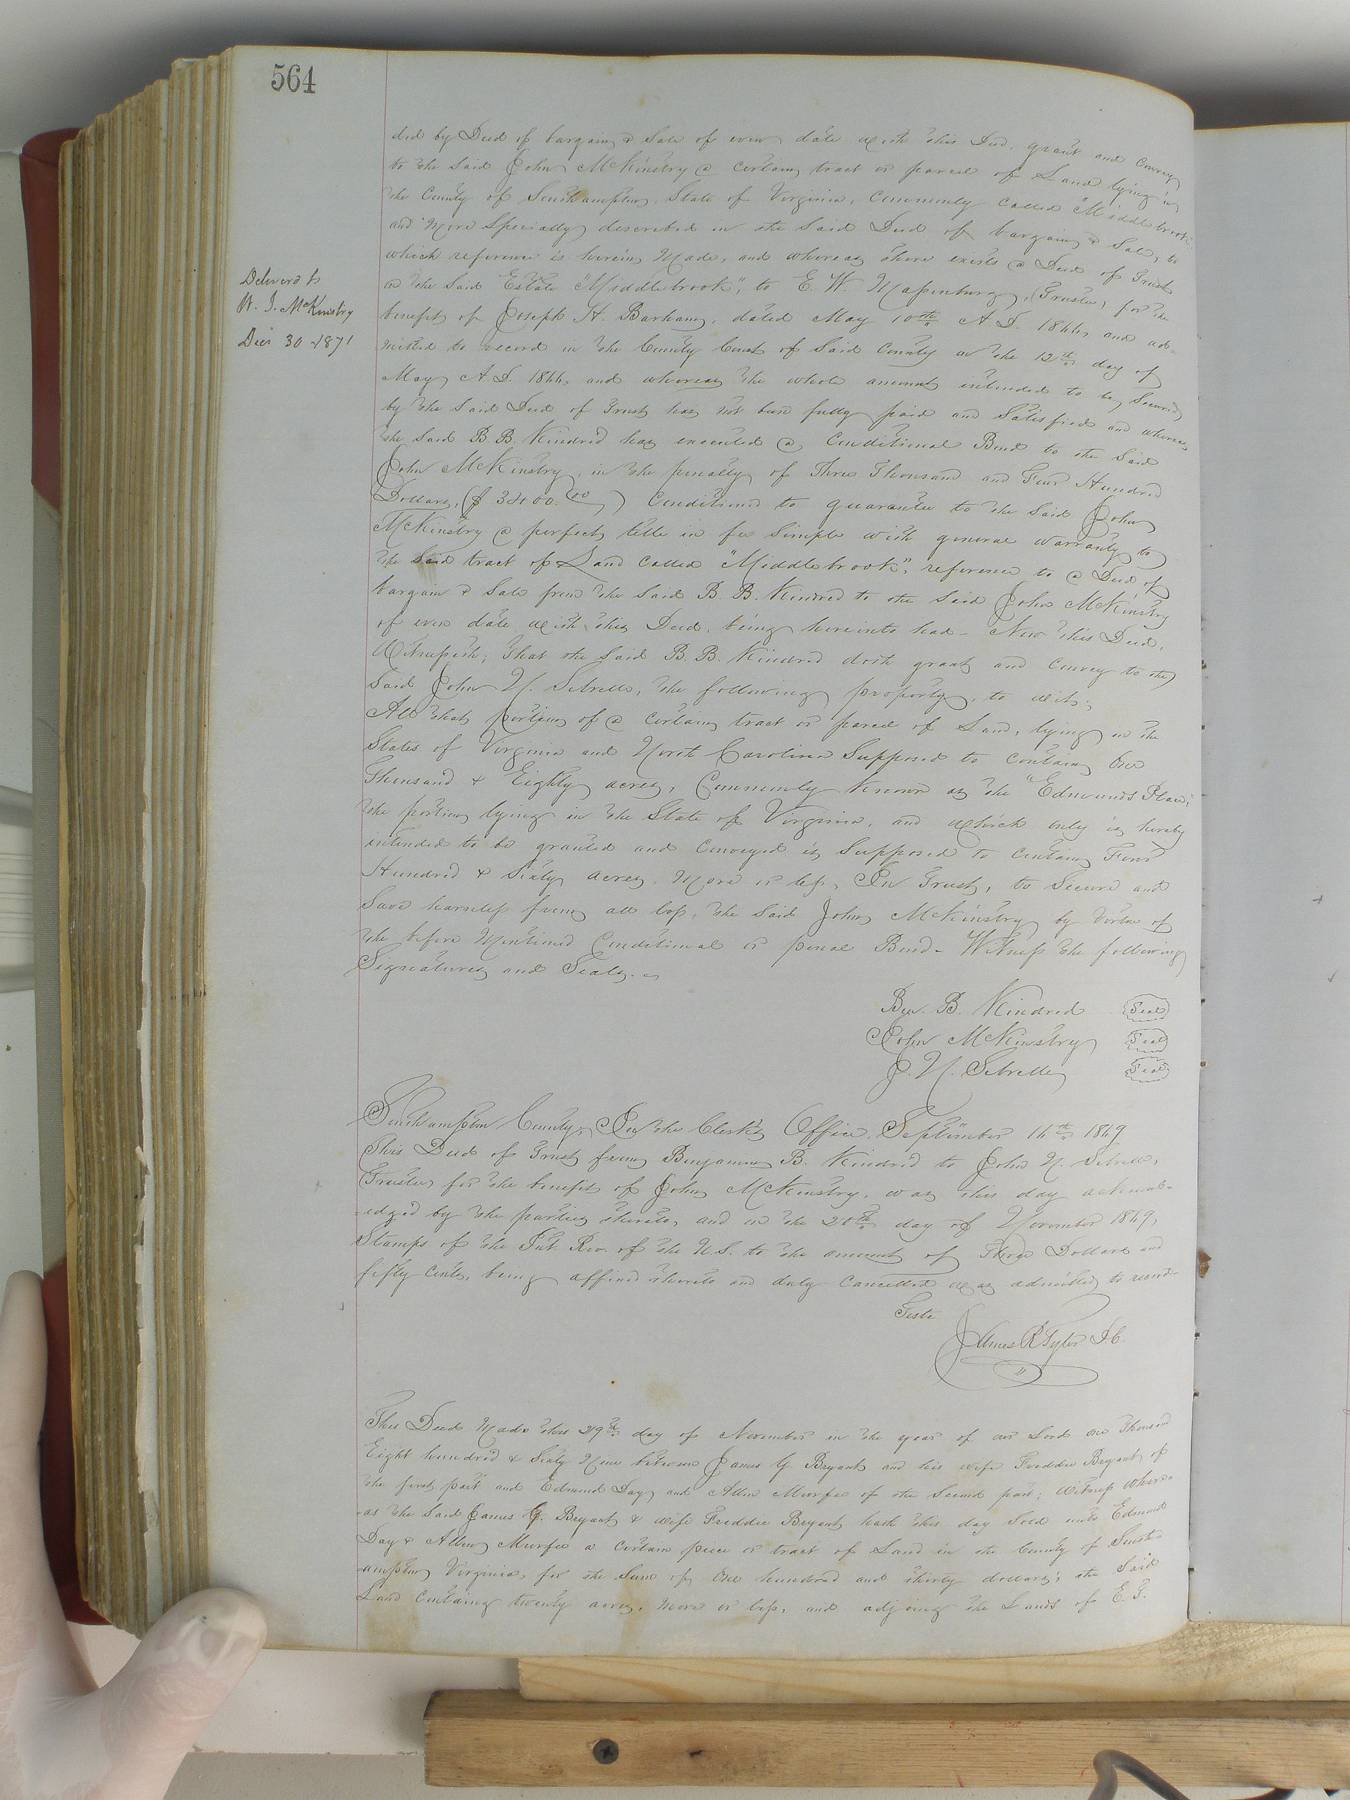 564
Deliverd to
W. J. McKinstry
Decr 30 1871
did by Deed of bargain & Sale of even date with this Deed, grant and convey
to the said John McKinstry a certain tract or parcel of Land lying in
the County of Southampton, State of Virginia, Commonly called "Middlebrook"
and More Specially described in the Said Deed of bargain & Sale, to
which reference is herein Made, and whereas there exists a Deed of Trust
on the said Estate "Middlebrook", to E. W. Massenburg, (Trustee) for the
benefit of Joseph H. Barham, dated May 10th A.D. 1844, and ad-
mitted to record in the County Court of Said County on the 12th day of
May A.D. 1844, and whereas the whole amount intended to be Secured
by the Said Deed of Trust has not been fully paid and Satisfied and whereas
the Said B. B. Kindred has executed a Conditional Bond to the Said
John McKinstry, in the penalty of Three Thousand and Four Hundred
Dollars, ($3400.00) Conditioned to guarantee to the Said John
McKinstry a perfect title in fee Simple with general warranty to
the Said tract of Land called "Middlebrook", reference to a Deed of
bargain & Sale from the Said B. B. Kindred to the Said John McKinstry
of even date with this Deed, being hereinto had - Now this Deed,
Witnesseth; That the Said B. B. Kindred doth grant and Convey to the
Said John N. Sebrelle, the following property, to wit;
All that portion of a certain tract or parcel of Land, lying in the
States of Virginia and North Carolina Supposed to contain One
Thousand & Eighty acres, Commonly known as the "Edmunds Place,"
the portion lying in the State of Virginia, and which only is hereby
intended to be granted and Conveyed is Supposed to Contain Four
Hundred & Sixty acres. More or less, In Trust, to Secure and
Save harmless from all loss, the Said John McKinstry by virtue of
the before Mentioned Conditional or penal Bond- Witness the following
Signatures and Seals.
Ben. B. Kindred Seal
John McKinstry Seal
J. N. Sebrelle Seal
Southampton County, In the Clerk's Office, September 14th 1869
This Deed of Trust from Benjamin B. Kindred to John N. Sebrelle,
Trustee for the benefit of John McKinstry, was this day acknowl-
-edged by the parties thereto, and on the 20th day of November 1869,
Stamps of the Int. Rev. of the U.S. to the amount of Three Dollars and
fifty Cents, being affixed thereto and duly Cancelled was admitted to record-
Teste
James R Tyler D C.
This Deed Made this 29th day of November in the year of our Lord One Thousand
Eight hundred & Sixty Nine between James G. Bryant and his wife Freddie Bryant of
the first part and Edmund Day and Allen Murfee of the Second part; Witness Where-
-as the Said James G. Bryant & wife Freddie Bryant hath this day Sold unto Edmund
Day & Allen Murfee a Certain piece or tract of Land in the County of South-
ampton Virginia, for the Sum of One hundred and thirty dollars; the Said
Land Containing twenty acres, more or less, and adjoing the Lands of E. T.